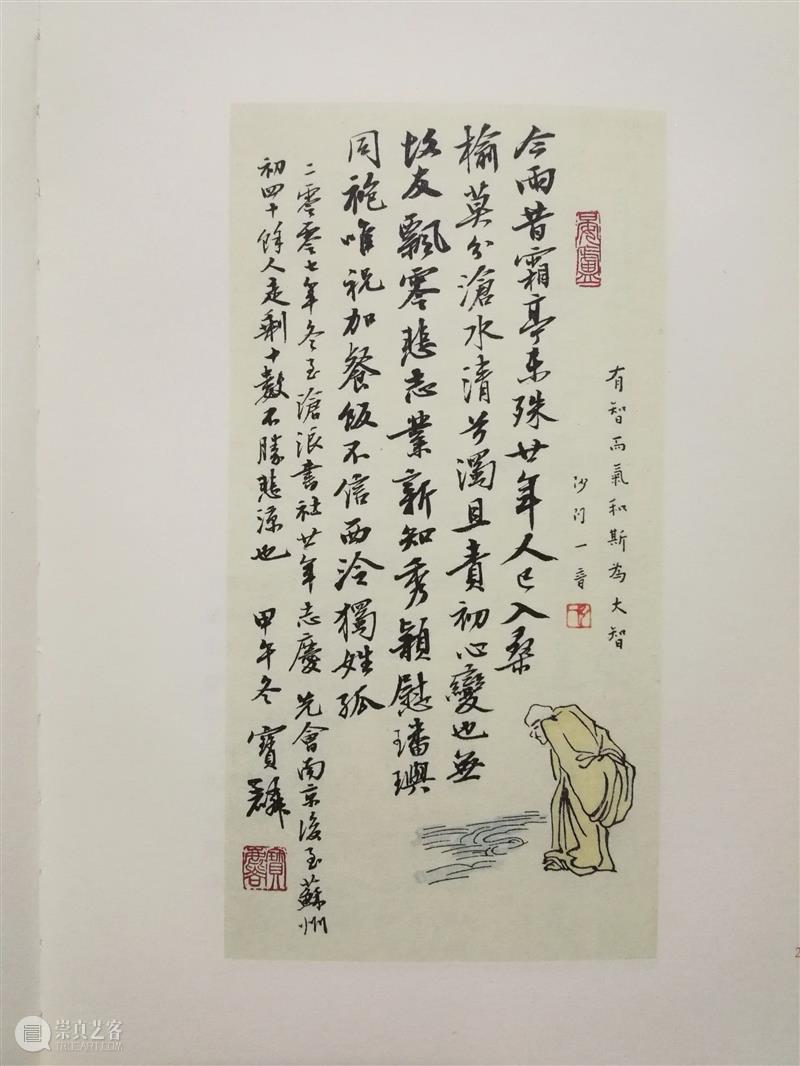 有智而氣和斯為大智
沙门一音
今雨昔霜亭未殊廿年人已入桑
榆莫分滄水清兮濁且責初心變也無
故友飄零悲志業新知秀穎慰璠璵
同袍唯祝加餐飯不信西泠獨姓孤
二零零七年冬至滄浪書社廿年志慶先會南京後至蘇州
初四十餘人走剩十數不勝悲涼也 甲午冬 寶麟
2
崇真艺客
TRUEART.COM